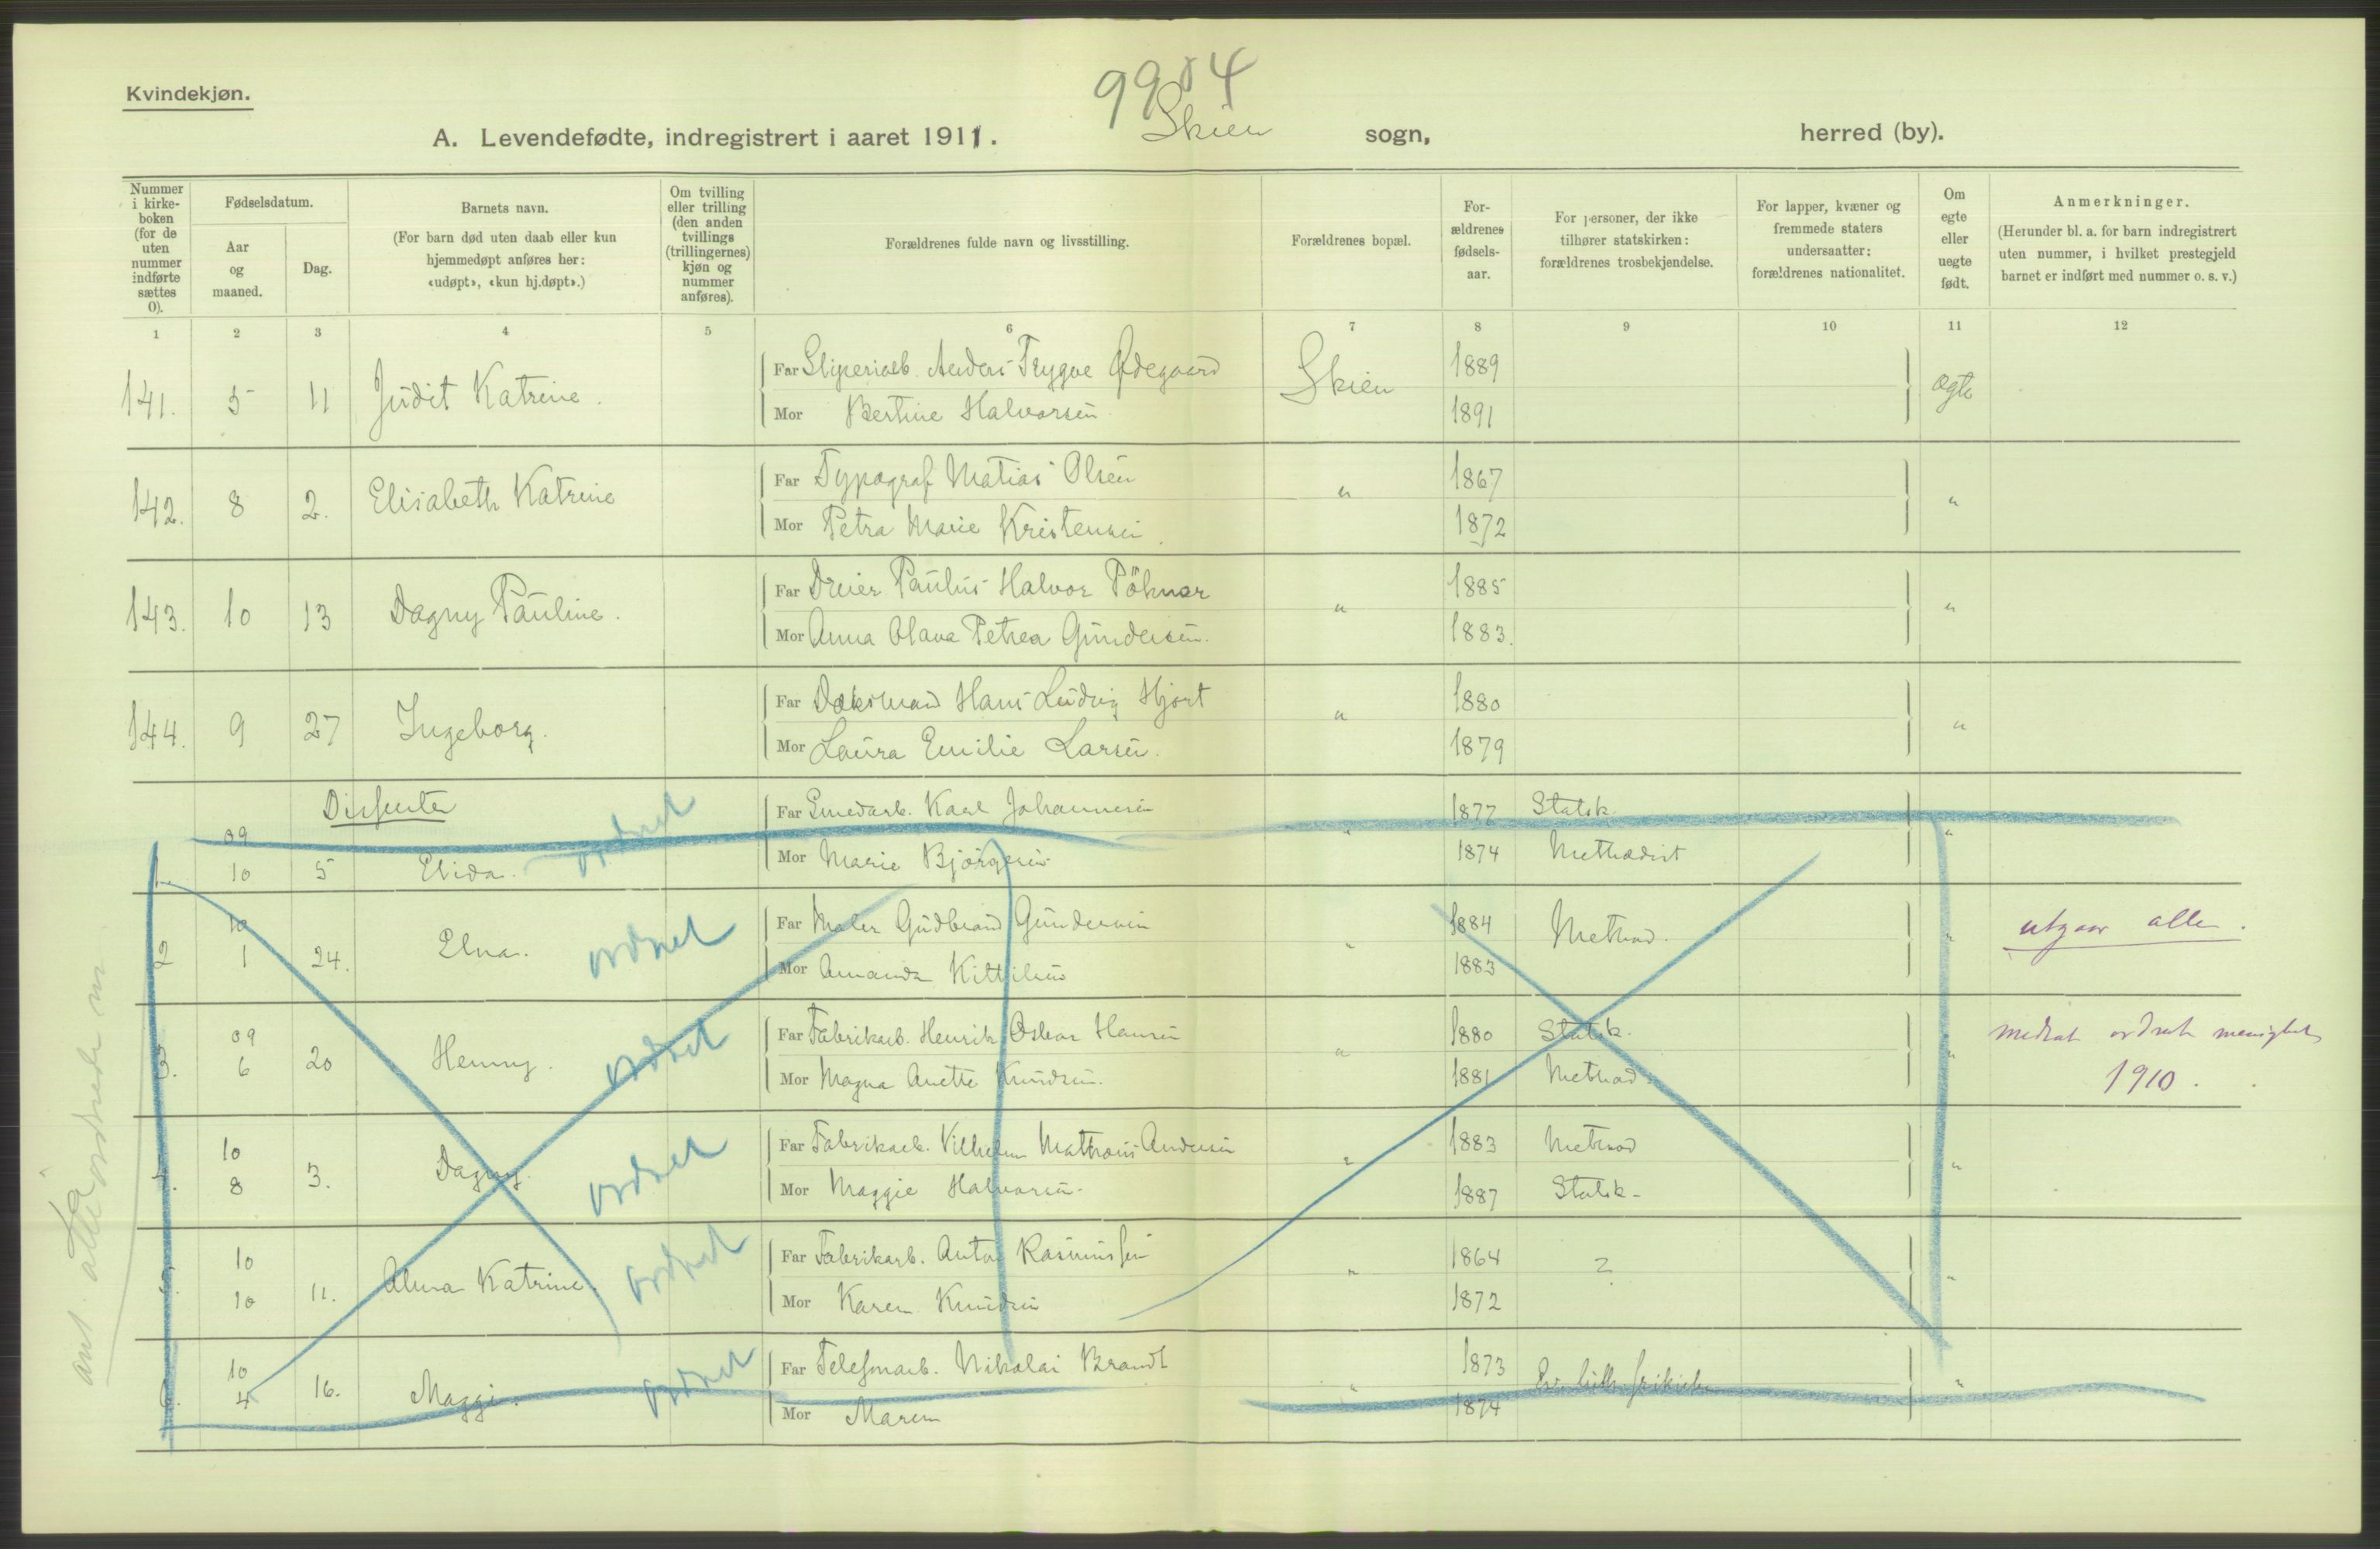 9984
Kvindekjøn.
A. Levendefødte, indregistrert i aaret 1911. Skien sogn, herred (by).
Nummer i kirke-boken (for de uten nummer indførte sættes 0).
Fødselsdatum.
Aar og maaned.
Dag.
Barnets navn.
(For barn død uten daab eller kun hjemmedøpt anføres her: «udøpt», «kun hj.døpt».)
Om tvilling eller trilling (den anden tvillings (trillingernes) kjøn og nummer anføres).
Forældrenes fulde navn og livsstilling.
Forældrenes bopæl.
For-ældrenes fødsels-aar.
For personer, der ikke tilhører statskirken: forældrenes trosbekjendelse.
For lapper, kvæner og fremmede staters undersaatter: forældrenes nationalitet.
Om egte eller uegte født.
Anmerkninger.
(Herunder bl. a. for barn indregistrert uten nummer, i hvilket prestegjeld barnet er indført med nummer o. s. v.)
1 2 3 4 5 6 7 8 9 10 11 12
141. 5 11 Judit Katrine. Far Sliperiarb. Anders Trygve Ødegaard Skien 1889 ægte
Mor Bertine Halvorsen 1891
142. 8 2. Elisabeth Katrine Far Typograf Matias Olsen " 1867 "
Mor Petra Marie Kristensen. 1872
143. 10 13 Dagny Pauline. Far Dreier Paulus Halvor Pöhner " 1885 "
Mor Anna Olava Petrea Gundersen. 1883.
144. 9 27 Ingeborg. Far Doksmand Hans Ludvig Hjort " 1880 "
Mor Laura Emilie Larsen. 1879
Dissenter
1. 09 10 5 Elida. ordnet Far Smedarb. Karl Johannesen " 1877 Statsk. "
Mor Marie Bjørgesen 1874 Methodist
2 10 1 24. Elna. ordnet Far Maler Gudbrand Gundersen " 1884 Methad. " utgaar alle.
Mor Amanda Kittilsen 1883
3. 09 6 20 Henny. ordnet Far Fabrikarb. Henrik Oskar Hansen " 1880 Statsk. "
Mor Magna Anette Knudsen. 1881 Methad 1910.
4. 10 8 3. Dagny. ordnet Far Fabrikarb. Vilhelm Andersen " 1883 Methad "
Mor Maggie Halvorsen. 1887 Statsk-
5. 10 10 11. Alma Katrine. ordnet Far Fabrikarb. Anton Rasmussen " 1864 ? "
Mor Karen Knudsen 1872
6. 10 4 16. Maggi. ordnet Far Nikolai Brandt " 1873 Ev. luth. frikirke "
Mor Maren 1874